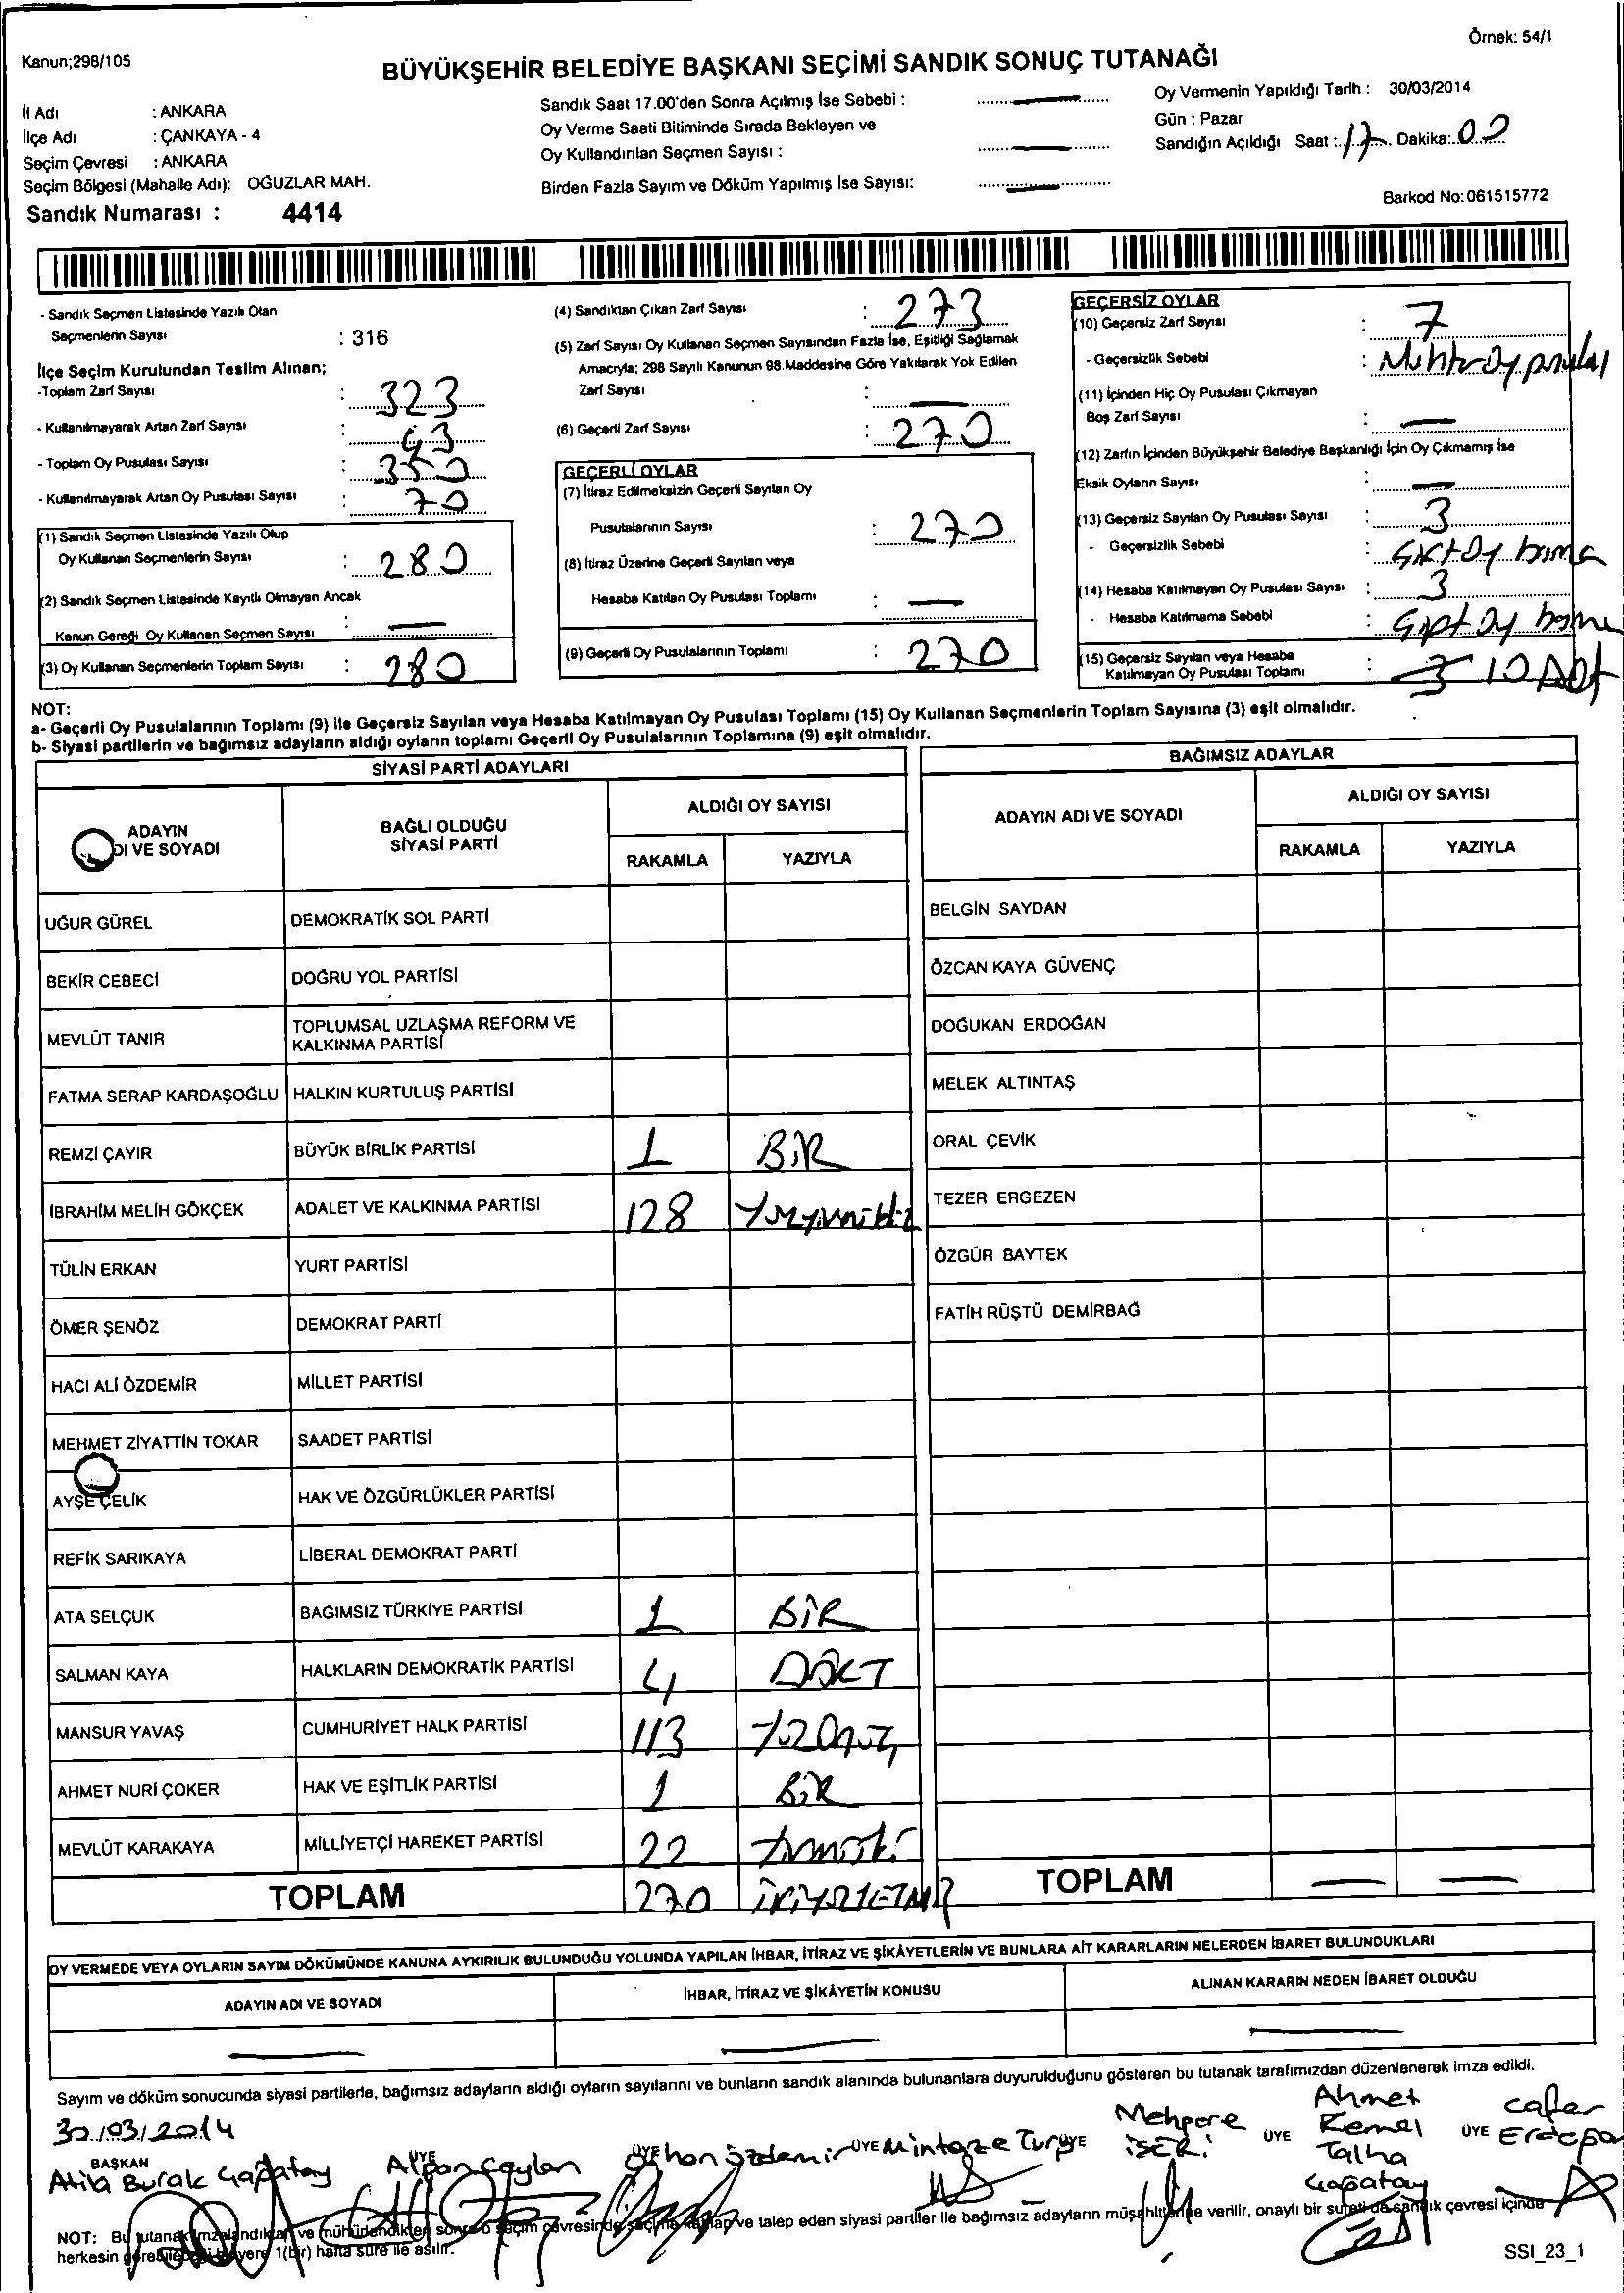 Örnek: 54/1
Kanun;298/105
BÜYÜKŞEHİR BELEDİYE BAŞKANI SEÇİMİ SANDIK SONUÇ TUTANAĞI
İl Adı : ANKARA
İlçe Adı : ÇANKAYA - 4
Seçim Çevresi : ANKARA
Seçim Bölgesi (Mahalle Adı): OĞUZLAR MAH.
Sandık Numarası : 4414
Sandık Saat 17.00'den Sonra Açılmış İse Sebebi : —
Oy Verme Saati Bitiminde Sırada Bekleyen ve
Oy Kullandırılan Seçmen Sayısı : —
Birden Fazla Sayım ve Döküm Yapılmış İse Sayısı: —
Oy Vermenin Yapıldığı Tarih : 30/03/2014
Gün : Pazar
Sandığın Açıldığı Saat : 17 Dakika: 00
Barkod No:061515772
- Sandık Seçmen Listesinde Yazılı Olan
Seçmenlerin Sayısı : 316
İlçe Seçim Kurulundan Teslim Alınan;
-Toplam Zarf Sayısı : 323
- Kullanılmayarak Artan Zarf Sayısı : 43
- Toplam Oy Pusulası Sayısı : 350
- Kullanılmayarak Artan Oy Pusulası Sayısı : 70
(1) Sandık Seçmen Listesinde Yazılı Olup
Oy Kullanan Seçmenlerin Sayısı : 280
(2) Sandık Seçmen Listesinde Kayıtlı Olmayan Ancak
Kanun Gereği Oy Kullanan Seçmen Sayısı : —
(3) Oy Kullanan Seçmenlerin Toplam Sayısı : 280
(4) Sandıktan Çıkan Zarf Sayısı : 273
(5) Zarf Sayısı Oy Kullanan Seçmen Sayısından Fazla İse, Eşitliği Sağlamak
Amacıyla; 298 Sayılı Kanunun 98.Maddesine Göre Yakılarak Yok Edilen
Zarf Sayısı : —
(6) Geçerli Zarf Sayısı : 270
GEÇERLİ OYLAR
(7) İtiraz Edilmeksizin Geçerli Sayılan Oy
Pusulalarının Sayısı : 270
(8) İtiraz Üzerine Geçerli Sayılan veya
Hesaba Katılan Oy Pusulası Toplamı : —
(9) Geçerli Oy Pusulalarının Toplamı : 270
GEÇERSİZ OYLAR
(10) Geçersiz Zarf Sayısı : 7
- Geçersizlik Sebebi :
(11) İçinden Hiç Oy Pusulası Çıkmayan
Boş Zarf Sayısı : —
(12) Zarfın İçinden Büyükşehir Belediye Başkanlığı İçin Oy Çıkmamış İse
Eksik Oyların Sayısı : —
(13) Geçersiz Sayılan Oy Pusulası Sayısı : 3
- Geçersizlik Sebebi : Oy
(14) Hesaba Katılmayan Oy Pusulası Sayısı : 3
- Hesaba Katılmama Sebebi : Oy
(15) Geçersiz Sayılan veya Hesaba
Katılmayan Oy Pusulası Toplamı : 10 Adet
NOT:
a- Geçerli Oy Pusulalarının Toplamı (9) ile Geçersiz Sayılan veya Hesaba Katılmayan Oy Pusulası Toplamı (15) Oy Kullanan Seçmenlerin Toplam Sayısına (3) eşit olmalıdır.
b- Siyasi partilerin ve bağımsız adayların aldığı oyların toplamı Geçerli Oy Pusulalarının Toplamına (9) eşit olmalıdır.
SİYASİ PARTİ ADAYLARI
ADAYIN DI VE SOYADI
BAĞLI OLDUĞU SİYASİ PARTİ
ALDIĞI OY SAYISI
RAKAMLA YAZIYLA
UĞUR GÜREL DEMOKRATİK SOL PARTİ
BEKİR CEBECİ DOĞRU YOL PARTİSİ
MEVLÜT TANIR TOPLUMSAL UZLAŞMA REFORM VE KALKINMA PARTİSİ
FATMA SERAP KARDAŞOĞLU HALKIN KURTULUŞ PARTİSİ
REMZİ ÇAYIR BÜYÜK BİRLİK PARTİSİ 1 BİR
İBRAHİM MELİH GÖKÇEK ADALET VE KALKINMA PARTİSİ 128
TÜLİN ERKAN YURT PARTİSİ
ÖMER ŞENÖZ DEMOKRAT PARTİ
HACI ALİ ÖZDEMİR MİLLET PARTİSİ
MEHMET ZİYATTİN TOKAR SAADET PARTİSİ
AYŞE ÇELİK HAK VE ÖZGÜRLÜKLER PARTİSİ
REFİK SARIKAYA LİBERAL DEMOKRAT PARTİ
ATA SELÇUK BAĞIMSIZ TÜRKİYE PARTİSİ 1 BİR
SALMAN KAYA HALKLARIN DEMOKRATİK PARTİSİ 4 DÖRT
MANSUR YAVAŞ CUMHURİYET HALK PARTİSİ 113 YüzOnüç
AHMET NURİ ÇOKER HAK VE EŞİTLİK PARTİSİ 1 BİR
MEVLÜT KARAKAYA MİLLİYETÇİ HAREKET PARTİSİ 22
TOPLAM 270 İKİYÜZYETMİŞ
BAĞIMSIZ ADAYLAR
ADAYIN ADI VE SOYADI
ALDIĞI OY SAYISI
RAKAMLA YAZIYLA
BELGİN SAYDAN
ÖZCAN KAYA GÜVENÇ
DOĞUKAN ERDOĞAN
MELEK ALTINTAŞ
ORAL ÇEVİK
TEZER ERGEZEN
ÖZGÜR BAYTEK
FATİH RÜŞTÜ DEMİRBAĞ
TOPLAM — —
OY VERMEDE VEYA OYLARIN SAYIM DÖKÜMÜNDE KANUNA AYKIRILIK BULUNDUĞU YOLUNDA YAPILAN İHBAR, İTİRAZ VE ŞİKÂYETLERİN VE BUNLARA AİT KARARLARIN NELERDEN İBARET BULUNDUKLARI
ADAYIN ADI VE SOYADI İHBAR, İTİRAZ VE ŞİKÂYETİN KONUSU ALINAN KARARIN NEDEN İBARET OLDUĞU
— — —
Sayım ve döküm sonucunda siyasi partilerle, bağımsız adayların aldığı oyların sayılarını ve bunların sandık alanında bulunanlara duyurulduğunu gösteren bu tutanak tarafımızdan düzenlenerek imza edildi.
30/03/2014
BAŞKAN ÜYE ÜYE ÜYE ÜYE ÜYE ÜYE
Atila Burak Çağatay
Alpan Ceylan
Orhan Özdemir
Mehpere İŞERİ
Ahmet Kemal Talha Çağatay
Cafer
NOT: Bu tutanak imzalandıktan ve mühürlendikten sonra o seçim çevresinde seçime katılan ve talep eden siyasi partiler ile bağımsız adayların müşahitlerine verilir, onaylı bir sureti de sandık çevresi içinde
herkesin görebileceği bir yere 1(bir) hafta süre ile asılır.
SSI_23_1